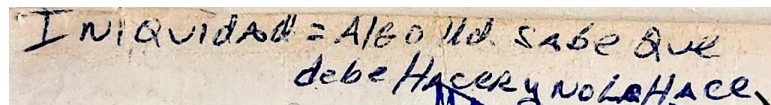 INIQUIDAD = Algo Ud. sabe que
debe HACER y NO LO HACE,